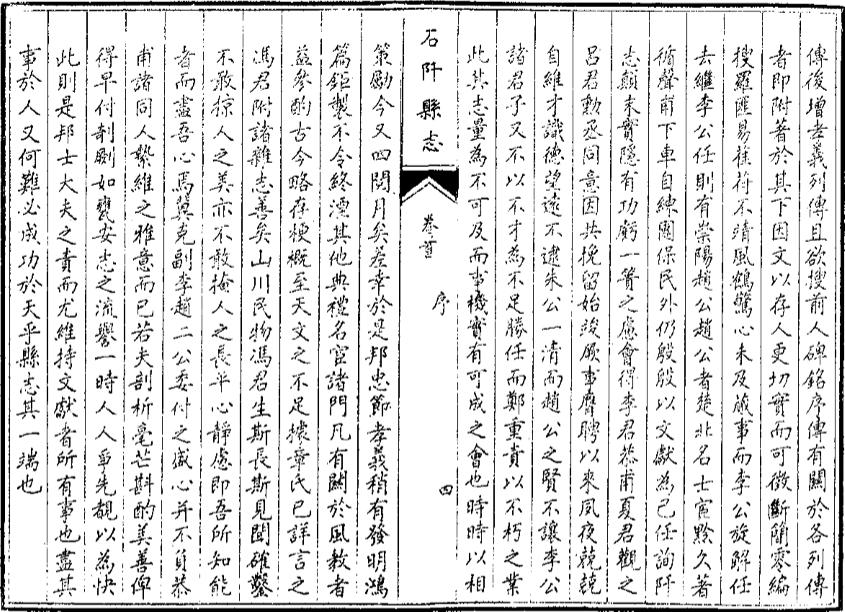 傳後增孝義列傳且欲搜前人碑銘序傳有關於各列傳
者即附著於其下因文以存人更切實而可徵斷簡零編
搜羅匪易萑苻不清風鶴驚心未及蕆事而李公旋解任
去繼李公任則有崇陽趙公趙公者楚北名士宦黔久著
循聲甫下車自練團保民外仍殷殷以文獻為己任詢阡
志顛末實隱有功虧一簣之慮會得李君恭甫夏君觀之
呂君勳丞同意因共挽留始竣厥事膺聘以來夙夜兢兢
自維才識德望遠不逮朱公一清而趙公之賢不讓李公
諸君子又不以不才為不足勝任而鄭重責以不朽之業
此其志量為不可及而事機實有可成之會也時時以相
石阡縣志
卷首
序
四
策勵今又四閱月矣差幸於是邦忠節孝義稍有發明鴻
篇鉅製不令終湮其他典禮名宦諸門凡有關於風教者
益參酌古今略存梗概至天文之不足據章氏已詳言之
馮君附諸雜志善矣山川民物馮君生斯長斯見聞確鑿
不敢掠人之美亦不敢掩人之長平心靜慮即吾所知能
者而盡吾心焉冀克副李趙二公委付之盛心并不負恭
甫諸同人縶維之雅意而已若夫剖析毫芒斟酌美善俾
得早付剞劂如甕安志之流譽一時人人爭先覩以為快
此則是邦士大夫之責而尤維持文獻者所有事也盡其
事於人又何難必成功於天乎縣志其一端也